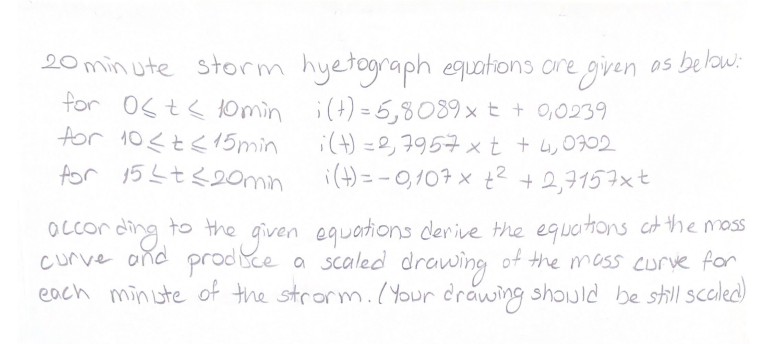 20 minute storm hyetograph equations are given as below:
for 0 ≤ t ≤ 10min i(t) = 5,8089 x t + 0,0239
for 10 ≤ t ≤ 15min i(t) = 2,7957 x t + 4,0702
for 15 ≤ t ≤ 20min i(t) = -0,107 x t² + 2,7157xt
according to the given equations derive the equations of the mass
curve and produce a scaled drawing of the mass curve for
each minute of the strorm. (Your drawing should be still scaled)